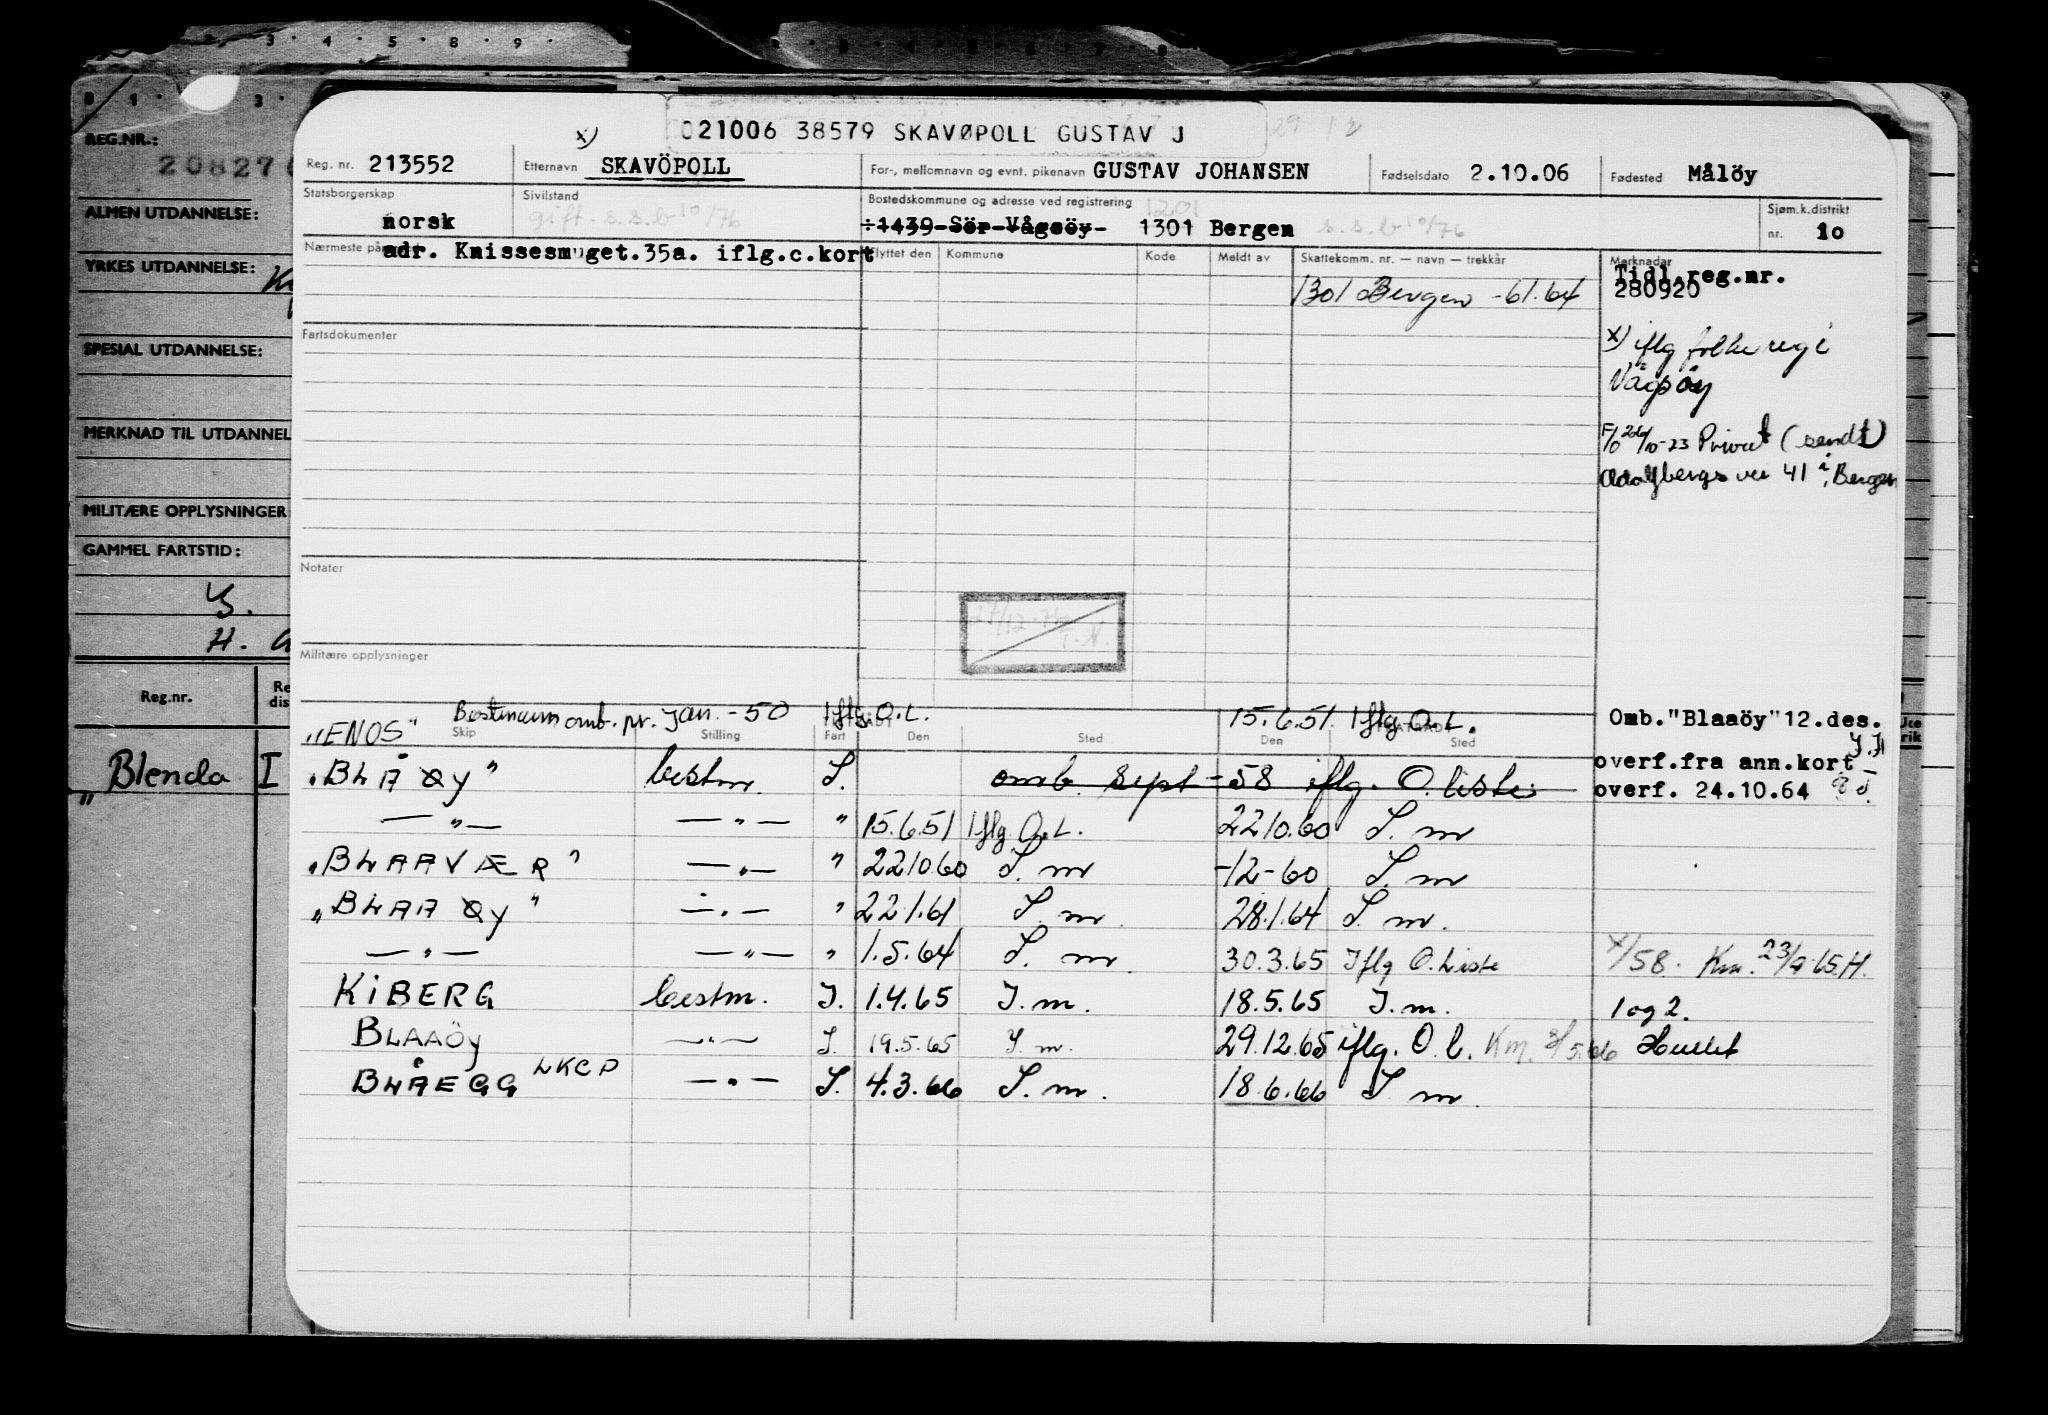 3 · 4 · 5 · 8 · 9 ·
0 1 · 3 ·
REG.NR.:
20827
ALMEN UTDANNELSE:
YRKES UTDANNELSE:
SPESIAL UTDANNELSE:
MERKNAD TIL UTDANNEL
MILITÆRE OPPLYSNINGER
GAMMEL FARTSTID:
H.
Reg.nr. Re
dis
"Blenda I
x) 021006 38579 SKAVØPOLL GUSTAV J
Reg. nr. 213552 Etternavn SKAVÖPOLL For-, mellomnavn og evnt. pikenavn GUSTAV JOHANSEN Fødselsdato 2.10.06 Fødested Målöy
Statsborgerskap Sivilstand Bostedskommune og adresse ved registrering 1201 Sjøm.k.distrikt
norsk gift - s.s.b 10/76 ÷1439 Sör-Vågsöy- 1301 Bergen s.s.b 10/76 nr. 1o
adr. Knissesmuget.35a. iflg.c.kort
Flyttet den Kommune Kode Meldt av Skattekomm. nr. — navn — trekkår Merknader
1301 Bergen -61.64
Tidl.reg.nr.
280920
Fartsdokumenter
x) iflg folkereg i
Vågsøy
F/O 26/10-23 Privat (sendt)
41 i Bergen
Notater
Militære opplysninger
"ENOS" Bestmann omb. pr. Jan. -50 Iflg. O.L. 15.6.51 Iflg O.L. Omb."Blaaöy"12.des.
Skip Stilling Fart Den Sted Den Sted
"BLÅØY" bestm. S. omb. sept -58 iflg. O. liste overf.fra ann.kort
overf. 24.10.64
— " — — " — " 15.6.51 Iflg O.L. 22.10.60 S. m
"BLAAVÆR" — " — " 22.10.60 S. m -12-60 S. m
"BLAAØY" — " — " 22.1.61 S. m 28.1.64 S. m.
— " — — " — " 1.5.64 S. m. 30.3.65 Iflg O. Liste x/58. Km. 23/9-65.H.
KIBERG bestm. I. 1.4.65 I.m. 18.5.65 I.m. 1 og 2.
BLAAÖY — " — S. 19.5.65 S. m. 29.12.65 iflg. O.l. Km.
BLÅEGG LKCP — " — S. 4.3.66 S. m. 18.6.66 S. m.